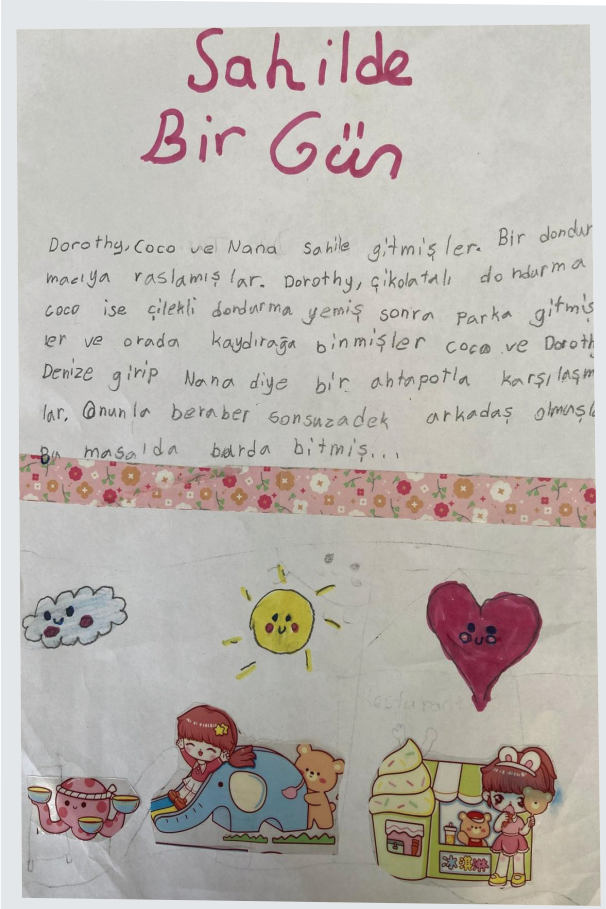 Sahilde
Bir Gün
Dorothy, Coco ve Nana sahile gitmişler. Bir dondur
macıya raslamışlar. Dorothy, çikolatalı dondurma
coco ise çilekli dondurma yemiş sonra Parka gitmiş
ler ve orada kaydırağa binmişler coco ve Doroth
Denize girip Nana diye bir ahtapotla karşılaşm
lar. Onunla beraber sonsuzadek arkadaş olmuşl
Bu masalda burda bitmiş...
冰淇淋